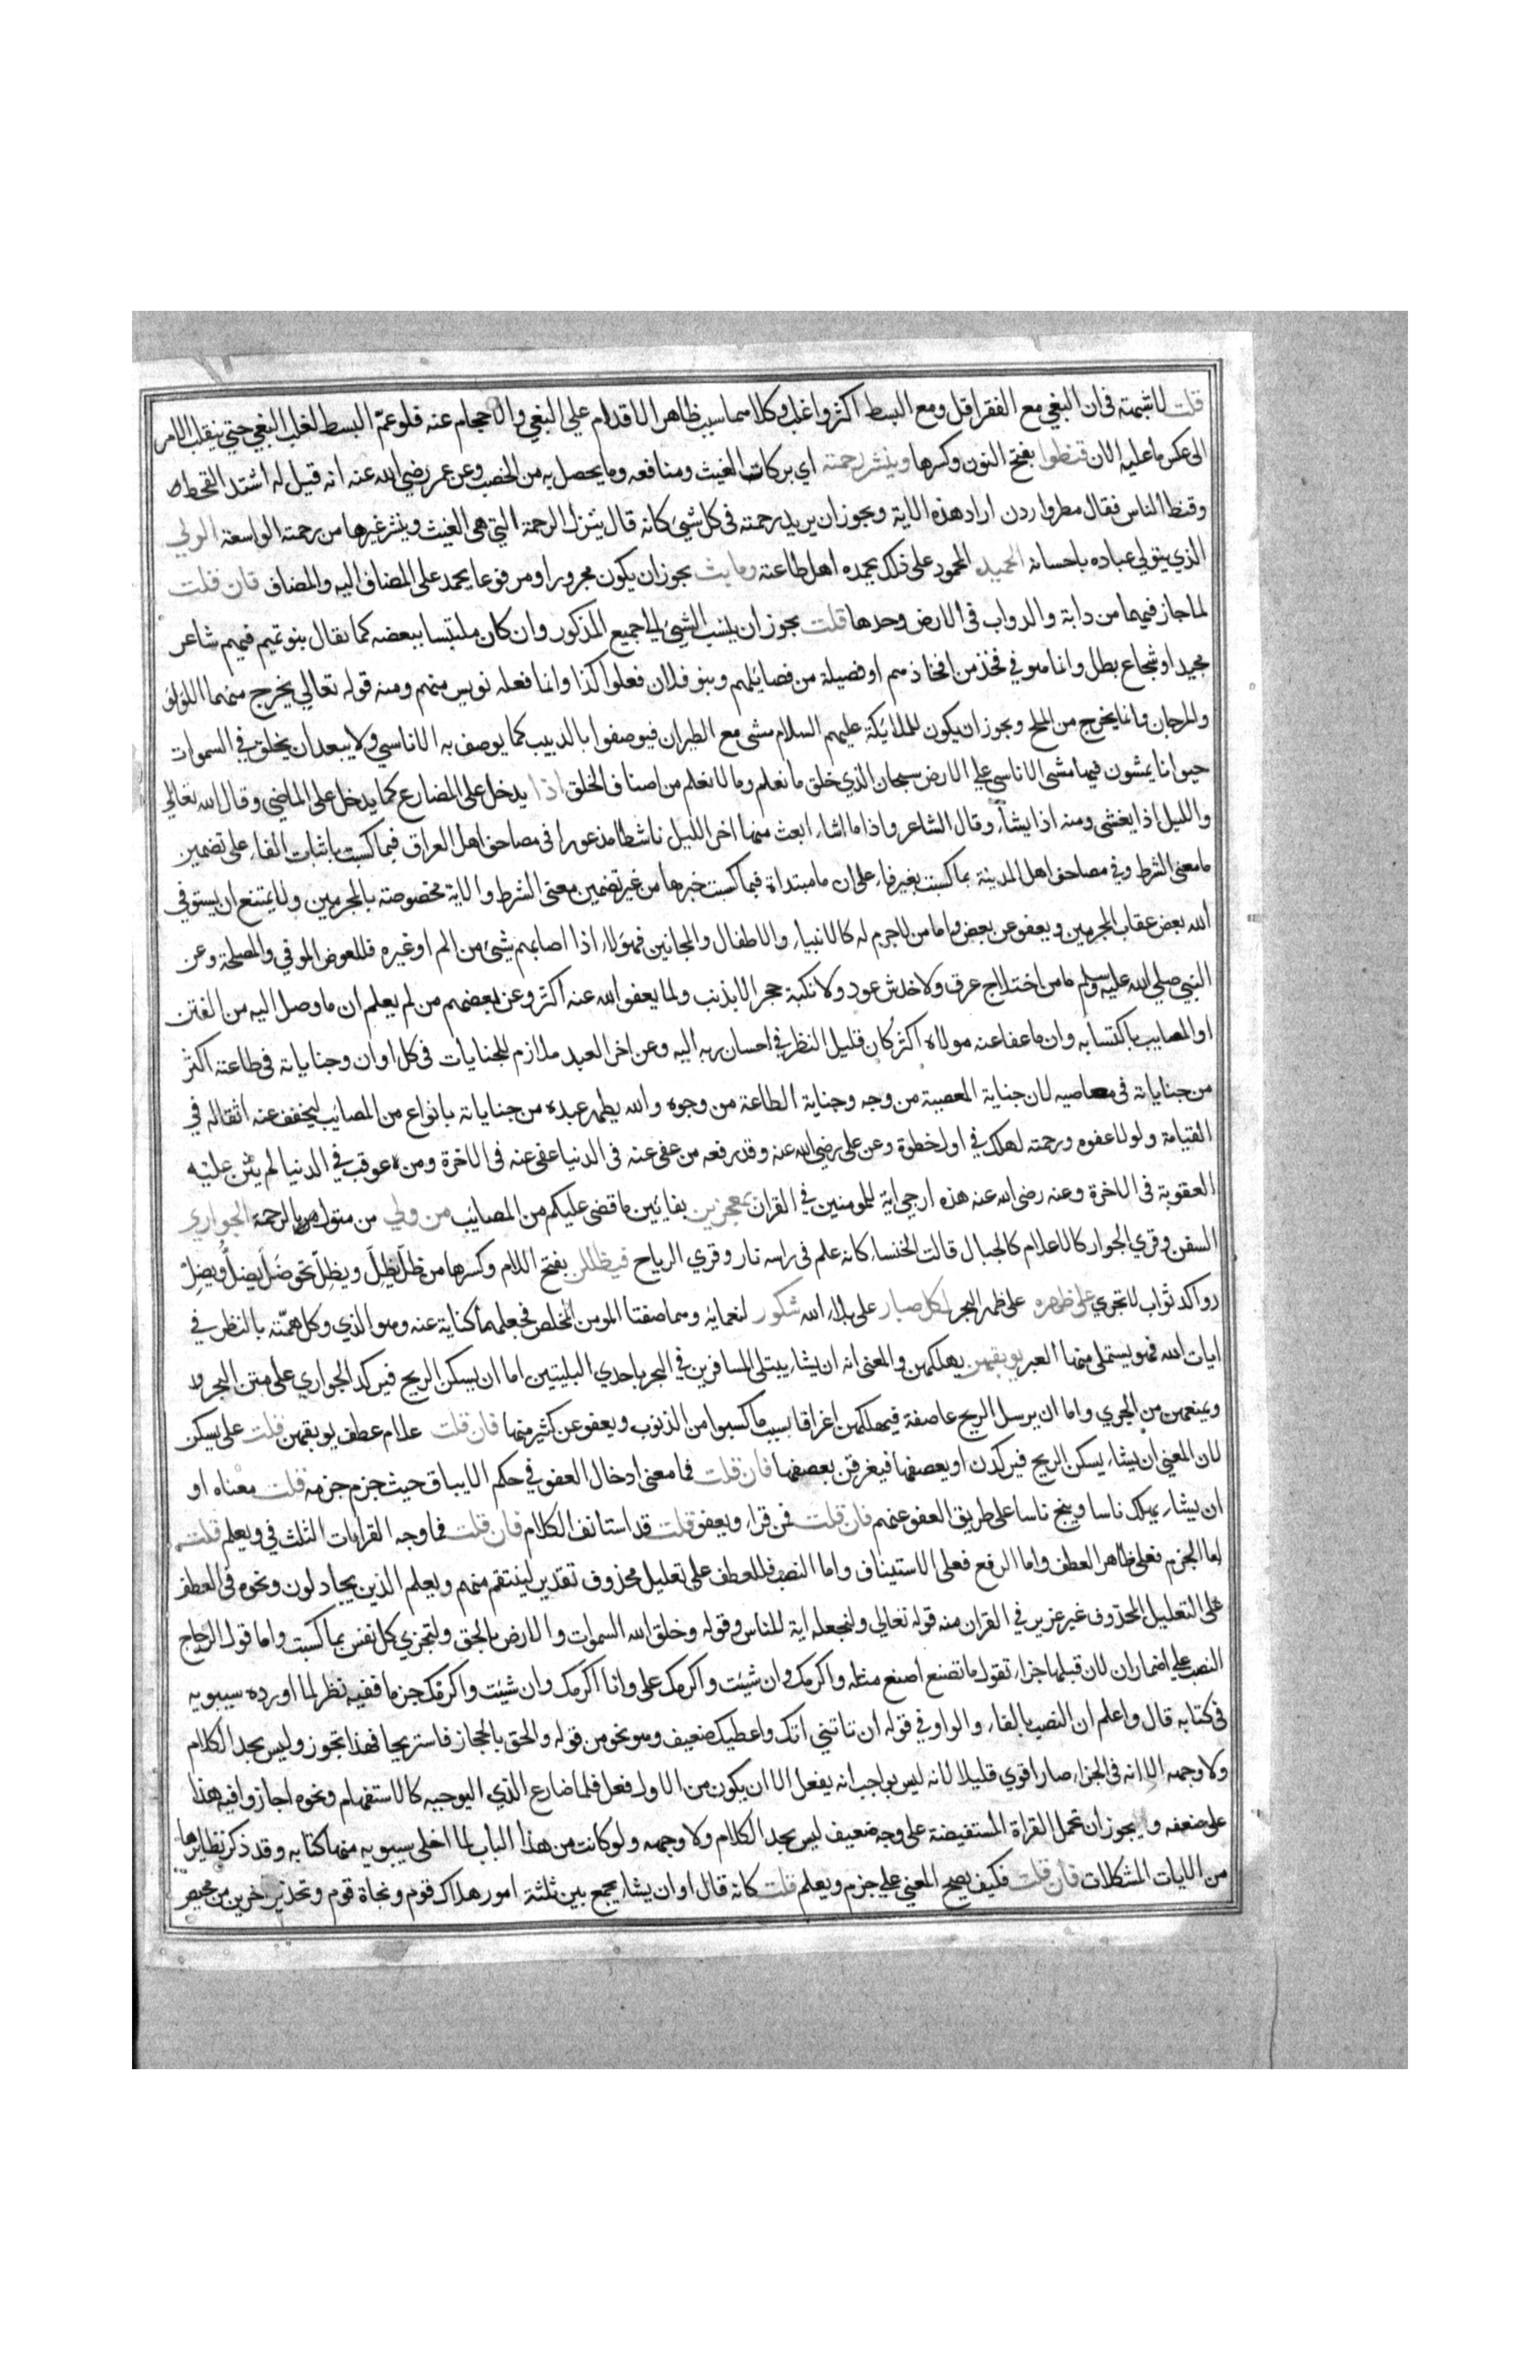 قلت لا شبهة في ان البغي مع الفقر اقل ومع البسط اكثر واغلب وكلاهما سبب ظاهر الاقدام علي البغي والاحجام عنه فلو عمّ البسط لغلب البغي حتي ينقلب الامر
الى عكس ما عليه الان قنطوا بفتح النون وكسرها وينشر رحمته اي بركات الغيث ومنافعه وما يحصل به من الخصب وعن عمر رضي الله عنه انه قيل له اشتد القحط
وقنط الناس فقال مطروا اراد هذه الاية ويجوز ان يريد رحمته في كل شيئ كانه قال ينزل الرحمة التي هي الغيث وينشر غيرها من رحمته الواسعة الولي
الذي يتولي عباده باحسانه الحميد المحمود على ذلك يحمده اهل طاعته وما بث يجوز ان يكون مجرورا ومرفوعا يحمد على المضاف اليه والمضاف فان قلت
لما جاز فيهما من دابة والدواب في الارض وحدها قلت يجوز ان ينسب الشيئ الي جميع المذكور وان كان ملتبسا ببعضه كما يقال بنو تميم فيهم شاعر
مجيد او شجاع بطل وانما هو في فخذ من افخاذهم او فصيلة من فصائلهم وبنو فلان فعلوا كذا وانما فعله نويس منهم ومنه قوله تعالي يخرج منهما اللؤلؤ
والمرجان وانما يخرج من الملح ويجوز ان يكون للملائكة عليهم السلام مشي مع الطيران فيوصفوا بالدبيب كما يوصف به الاناسي ولا يبعد ان يخلق في السموات
حيوانا يمشون فيها مشي الاناسي علي الارض سبحان الذي خلق ما نعلم وما لا نعلم من اصناف الخلق اذا يدخل على المضارع كما يدخل على الماضي وقال الله تعالي
والليل اذا يغشى ومنه اذا يشآء وقال الشاعر واذا ما اشاء ابعث منها اخر الليل ناشطا مذعورا في مصاحف اهل العراق فبما كسبت باثبات الفاء على تضمين
ما معنى الشرط وفي مصاحف اهل المدينة بما كسبت بغير فاء على ان ما مبتداة فبما كسبت خبرها من غير تضمين معنى الشرط والاية مخصوصة بالمجرمين ولا يمتنع ان يستوفي
الله بعض عقاب المجرمين ويعفو عن بعض واما من لا جرم له كالانبياء والاطفال والمجانين فهؤلاء اذا اصابهم شيئ من الم او غيره فللعوض الموفي والمصلحة وعن
النبي صلي الله عليه وسلم ما من اختلاج عرق ولا خدش عود ولا نكبة حجر الا بذنب ولما يعفوا الله عنه اكثر وعن بعضهم من لم يعلم ان ما وصل اليه من الفتن
او المصايب باكتسابه وان ما عفا عنه مولاه اكثر كان قليل النظر في احسان ربه اليه وعن اخر العبد ملازم للجنايات في كل اوان وجناياته في طاعته اكثر
من جناياته في معاصيه لان جناية المعصية من وجه وجناية الطاعة من وجوه والله يطهر عبده من جناياته بانواع من المصائب ليخفف عنه اثقاله في
القيامة ولولا عفوه ورحمته لهلك في اول خطوة وعن على رضي الله عنه وقد رفعه من عفى عنه في الدنيا عفي عنه في الاخرة ومن عوقب في الدنيا لم يثن عليه
العقوبة في الاخرة وعنه رضى الله عنه هذه ارجي اية للمومنين في القران بمعجزين بفايتين ما قضى عليكم من المصائب من ولي من متول بالرحمة الجواري
السفن وقري الجوار كالاعلام كالجبال قالت الخنساء كانه علم في راسه نار وقري الرياح فيظللن بفتح اللام وكسرها من ظلّ يَظِلّ ويظَلّ نحو ضَلّ يضِلّ ويضَلّ
رواكد ثواب لا تجري على ظهره على ظهر البحر لكل صبار على بلاء الله شكور لنعمائه وهما صفتا المومن المخلص فجعلهما كناية عنه وهو الذي وكل همّته بالنظر في
ايات الله فهو يستملي منها العبر يوبقهن يهلكهن والمعنى انه ان يشاء يبتلى المسافرين في البحر باحدي البليتين اما ان يسكن الريح فيركد الجواري على متن البحر
ويمنعهن من الجري واما ان يرسل الريح عاصفة فيهلكهن اغراقا بسبب ما كسبوا من الذنوب ويعفو عن كثير منها فان قلت علام عطف يوبقهن قلت على يسكن
لان المعنى ان يشاء يسكن الريح فيركدن او يعصفها فيغرقن بعصفها فان قلت فما معنى ادخال العفو في حكم الايباق حيث جزم جزمه قلت معناه او
ان يشاء يهلك ناسا وينج ناسا على طريق العفو عنهم فان قلت فمن قراء ويعفو قلت قد استانف الكلام فان قلت فما وجه القراءات الثلث في ويعلم قلت
اما الجزم فعلى ظاهر العطف واما الرفع فعلى الاستيناف واما النصب فللعطف على تعليل محذوف تقديره لينتقم منهم ويعلم الذين يجادلون ونحوه في العطف
على التعليل المحذوف غير عزيز في القران منه قوله تعالي ولنجعله اية للناس وقوله وخلق الله السموات والارض بالحق ولتجزي كل نفس بما كسبت واما قول الزجاج
النصب علي اضمار ان لان قبلها جزاء تقول ما تصنع اصنع مثله واكرمك وان شيئت واكرمك على وانا اكرمك وان شيئت واكرمك جزما ففيه نظر لما اورده سيبويه
في كتابه قال واعلم ان النصب بالفاء والواو في قوله ان تاتيني اتك واعطيك ضعيف وهو نحو من قوله والحق بالحجاز فاستريحا فهذا تجوز وليس بحد الكلام
ولا وجهه الا انه في الجزاء صار اقوي قليلا لانه ليس بواجب انه يفعل الا ان يكون من الاول فعل فلما ضارع الذي لا يوجبه كالاستفهام ونحوه اجازوا فيه هذا
على ضعفه ولا يجوز ان تحمل القراة المستفيضة على وجه ضعيف ليس بحد الكلام ولا وجهه ولو كانت من هذا الباب لما اخلى سيبويه منها كتابه وقد ذكر نظايرها
من الايات المشكلات فان قلت فكيف يصح المعنى علي جزم ويعلم قلت كانه قال او ان يشاء يجمع بين ثلثة امور هلاك قوم ونجاة قوم وتحذير اخرين من محيص